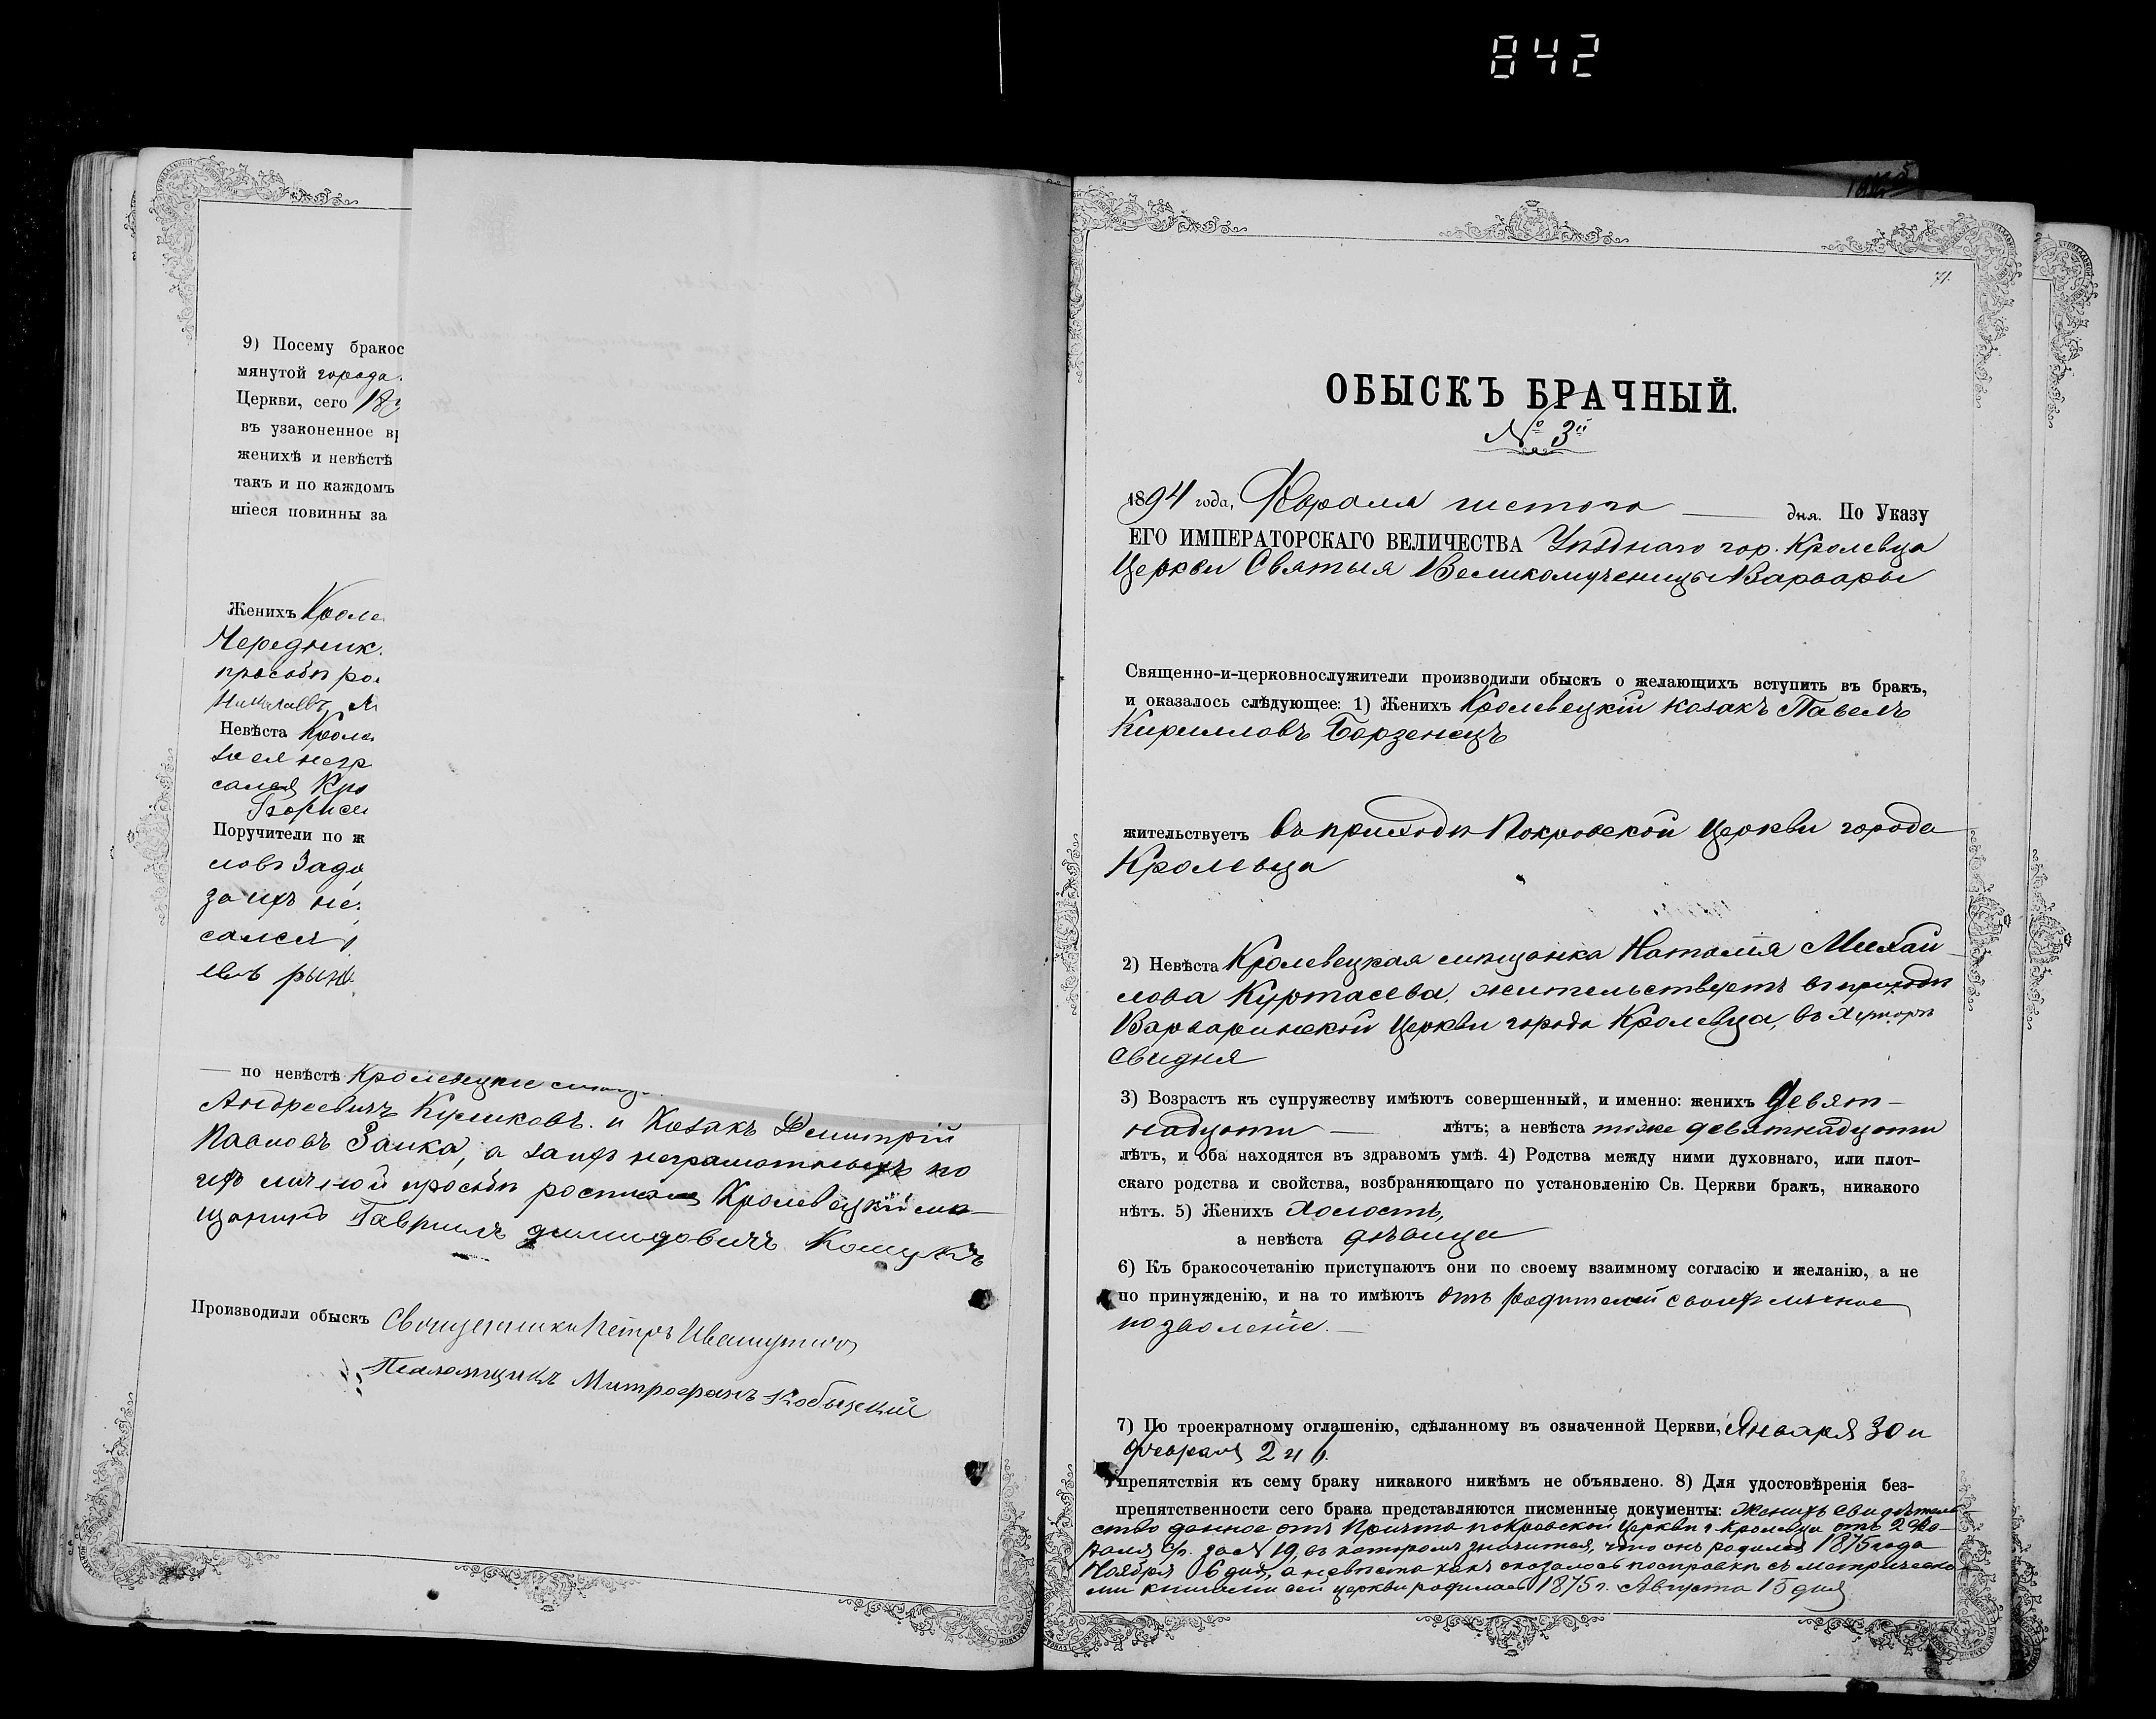 842
9) Посему бракос
мянутой города
Церкви, сего 189
въ узаконенное вр
женихѣ и невѣстѣ
такъ и по каждомъ
шіеся повинны за
Женихъ Кроле
Чередник
просьбѣ ро
Невѣста Кроле
за ея негр
сался Кро
Борисе
Поручители по ж
ловъ Задо
за ихъ не
сался
— по невѣстѣ Кролевецкіе
Андреевичъ Куликовъ. и козакъ Димитрій
Павловъ Заика, а за ихъ неграмотныхъ по
ихъ личной просьбѣ росписался Кролевецкій мѣ-
щанинъ Гавріилъ Демидовичъ
Производили обыскъ Священникъ Петръ
Псаломщикъ Митрофанъ
71.
ОБЫСКЪ БРАЧНЫЙ.
№ 3й
1894 года, Февраля шестого — дня. По Указу
ЕГО ИМПЕРАТОРСКАГО ВЕЛИЧЕСТВА Уѣзднаго гор. Кролевца
Церкви Святыя Великомученицы Варвары
Священно-и-церковнослужители производили обыскъ о желающихъ вступить въ бракъ,
и оказалось слѣдующее: 1) Женихъ Кролевецкій козакъ Павелъ
Кирилловъ Борзенецъ
жительствуетъ въ приходѣ Покровской Церкви города
Кролевца
2) Невѣста Кролевецкая мѣщанка Наталія Михай-
лова Куртасева, жительствуетъ въ приходѣ
Варваринской Церкви города Кролевца, въ хуторѣ
Свидня
3) Возрастъ къ супружеству имѣютъ совершенный, и именно: женихъ девят-
надцати — лѣтъ; а невѣста тоже девятнадцати
лѣтъ, и оба находятся въ здравомъ умѣ. 4) Родства между ними духовнаго, или плот-
скаго родства и свойства, возбраняющаго по установленію Св. Церкви бракъ, никакого
нѣтъ. 5) Женихъ холостъ,
а невѣста дѣвица
6) Къ бракосочетанію приступаютъ они по своему взаимному согласію и желанію, а не
по принужденію, и на то имѣютъ отъ родителей своихъ личное
позволеніе. —
7) По троекратному оглашенію, сдѣланному въ означенной Церкви, Января 30 и
Февраля 2 и 6.
препятствія къ сему браку никакого никѣмъ не объявлено. 8) Для удостовѣренія без-
препятственности сего брака представляются писменные документы: Женихъ свидѣтель-
ство данное отъ Причта Покровской Церкви г. Кролевца отъ 2 Фев-
раля с/г. за № 19, въ которомъ значится, что онъ родился 1875 года
Ноября 6 дня, а невѣста какъ оказалось по справкѣ съ метрически-
ми книгами сей церкви родилась 1875 г. Августа 15 дня